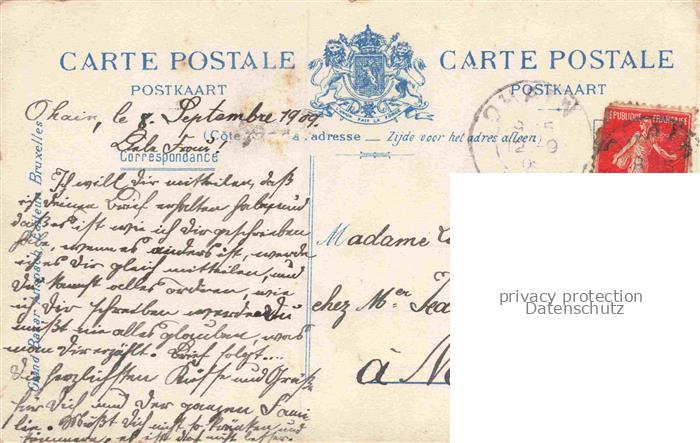 CARTE POSTALE
POSTKAART
CARTE POSTALE
POSTKAART
L'UNION FAIT LA FORCE
Ohain, le 8. Septembre 1909.
(Côte adresse — Zijde voor het adres alleen)
Correspondance
Ich will dir mitteilen, daß
ich deinen Brief erhalten habe und
daß es ist wie ich dir geschrieben
habe, wenn es anders ist, werde
ich es dir gleich mitteilen, und
du kannst alles ordnen, wie
ich dir schreiben werde. Du
mußt nie alles glauben, was
man dir erzählt. Brief folgt....
die herzlichsten Küsse und Grüße
für dich und der ganzen Fami
lie. Mußt dich nicht so kränken und
es ist das nicht besser.
Grand Bazar Anspach, Editeur Bruxelles
REPUBLIQUE FRANÇAISE
Madame
chez Mer
à
privacy protection
Datenschutz